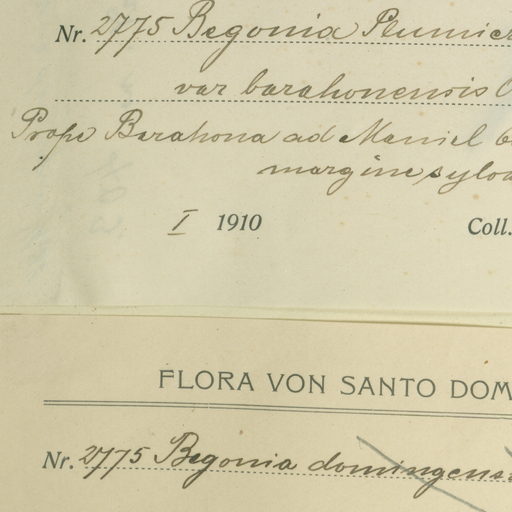 Nr. 2775 Begonia Plumier
var barahonensis O
Prope Barahona ad Maniel
margine sylva
I 1910 Coll.
FLORA VON SANTO DOM
Nr. 2775 Begonia domingensi